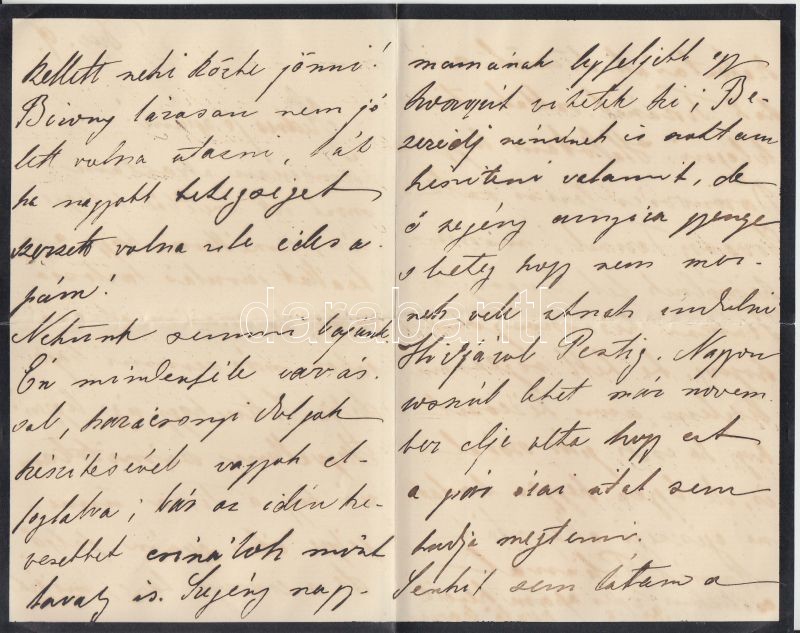 kellett neki Kőrbe jönni!
Bizony lázasan nem jó
lett volna utazni, hát
ha nagyobb betegséget
szerzett volna rele édes a-
pám!
Nekünk semmi bajunk
Én mindenféle varrás-
sal, karácsonyi dolgok
készítésével vagyok el-
foglalva; bár az idén ke-
vesebbet csinálok mint
tavaly is. Szegény nagy-
mamának legfeljebb egy
vihetek ki; Be-
zerédj néninek is akartam
készíteni valamit, de
ő szegény annyira gyenge
s beteg hogy nem mer-
nek vele útnak indulni
Hidjáról Pestig. Nagyon
rosszúl lehet már novem-
ber eleje olta hogy ezt
a pár órai útat sem
tudja megtenni.
Senkit sem látom a
darabanth